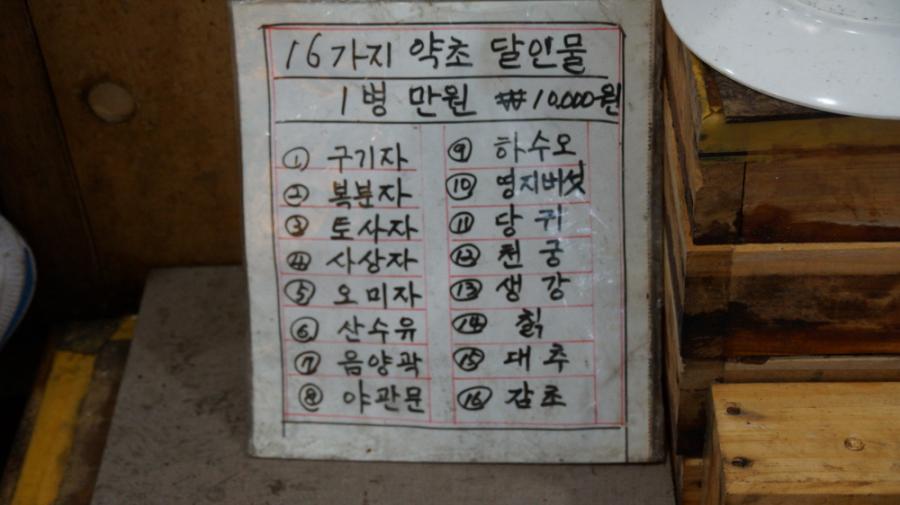 16가지 약초 달인물
1병 만원 ₩10.000원
① 구기자
② 복분자
③ 토사자
④ 사상자
⑤ 오미자
⑥ 산수유
⑦ 음양곽
⑧ 야관문
⑨ 하수오
⑩ 영지버섯
⑪ 당귀
⑫ 천궁
⑬ 생강
⑭ 칡
⑮ 대추
⑯ 감초